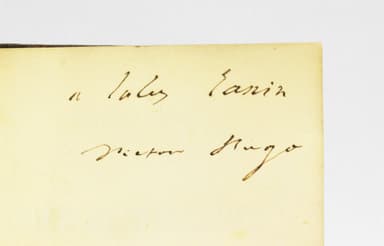 a Jules Janin
Victor Hugo